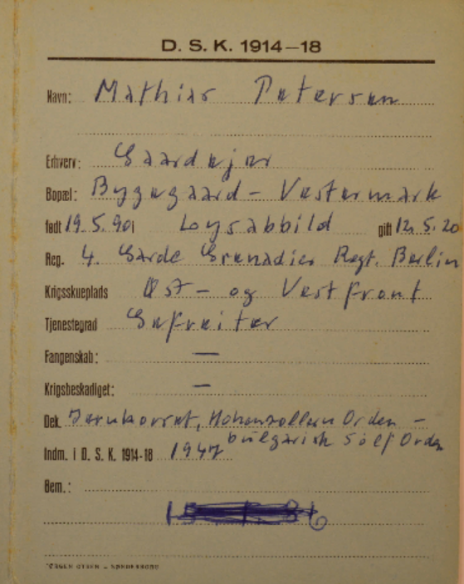 D. S. K. 1914–18
Navn: Mathias Petersen
Erhverv: Gaardejer
Bopæl: Bygegaard – Vestermark
født 19.5.90 i Loysabbild gift 12.5.20
Reg. 4. Garde Grenadier Regt. Berlin
Krigsskueplads Øst – og Vestfront
Tjenestegrad Gefreiter
Fangenskab: —
Krigsbeskadiget: —
Dek. Jernkorset, Hohenzollern Orden –
bulgarisk Sølf Orden
Indm. i D. S. K. 1914-18 1947
Bem.: